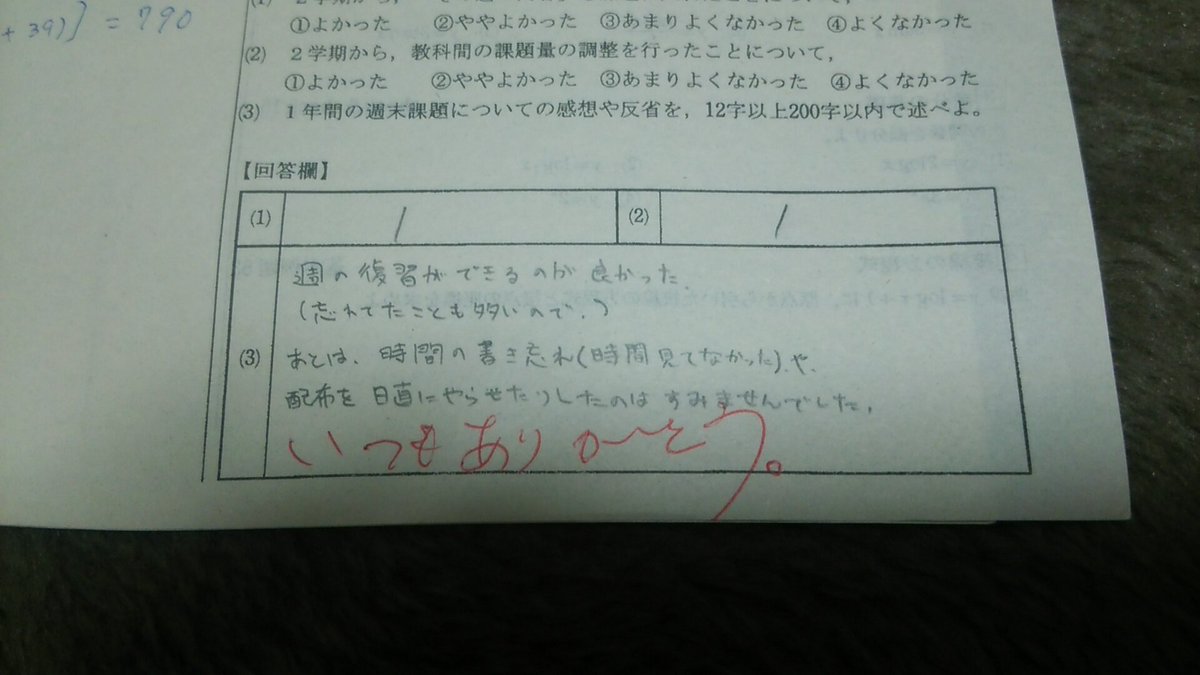 + 39)] = 790
(1) 2学期から,
①よかった ②ややよかった ③あまりよくなかった ④よくなかった
(2) 2学期から,教科間の課題量の調整を行ったことについて,
①よかった ②ややよかった ③あまりよくなかった ④よくなかった
(3) 1年間の週末課題についての感想や反省を,12字以上200字以内で述べよ。
【回答欄】
(1) 1 (2) 1
週の復習ができるのが良かった.
(忘れてたことも多いので.)
(3) あとは、時間の書き忘れ(時間見てなかった)や.
配布を日直にやらせたりしたのはすみませんでした.
いつもありがとう。